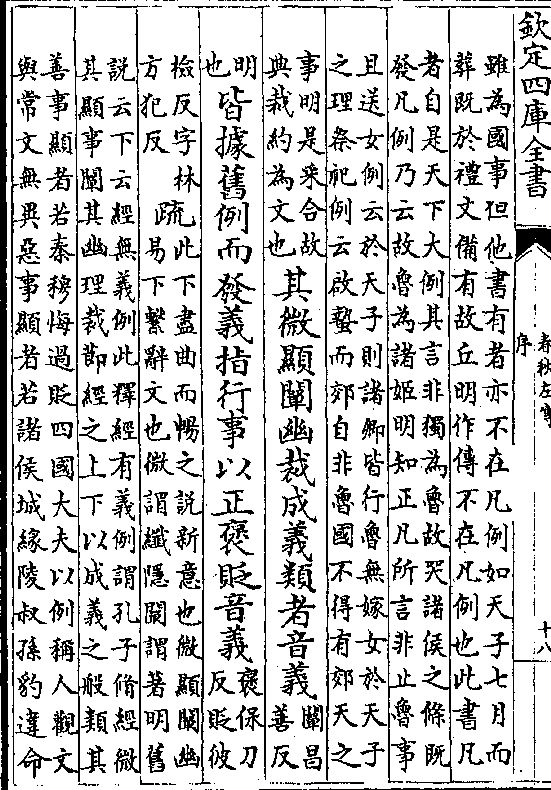 欽定四庫全書
春秋左專
序
十八
雖為國事但他書有者亦不在凡例如天子七月而
葬既於禮文備有故丘明作傳不在凡例也此書凡
者自是天下大例其言非獨為魯故哭諸侯之條既
發凡例乃云故魯為諸姬明知正凡所言非止魯事
且送女例云於天子則諸卿皆行魯無嫁女於天子
之理祭祀例云啟蟄而郊自非魯國不得有郊天之
事明是采合故
典裁約為文也
其微顯闡幽裁成義類者音義
闡昌
善反
明
也
皆據舊例而發義指行事以正褒貶音義
褒保刀
反貶彼
檢反字林
方犯反
疏
此下盡曲而暢之說新意也微顯闡幽
易下繫辭文也微謂纖隱闡謂著明舊
說云下云經無義例此釋經有義例謂孔子脩經微
其顯事闡其幽理裁節經之上下以成義之般類其
善事顯者若秦穆悔過貶四國大夫以例稱人觀文
與常文無異惡事顯者若諸侯城緣陵叔孫豹違命